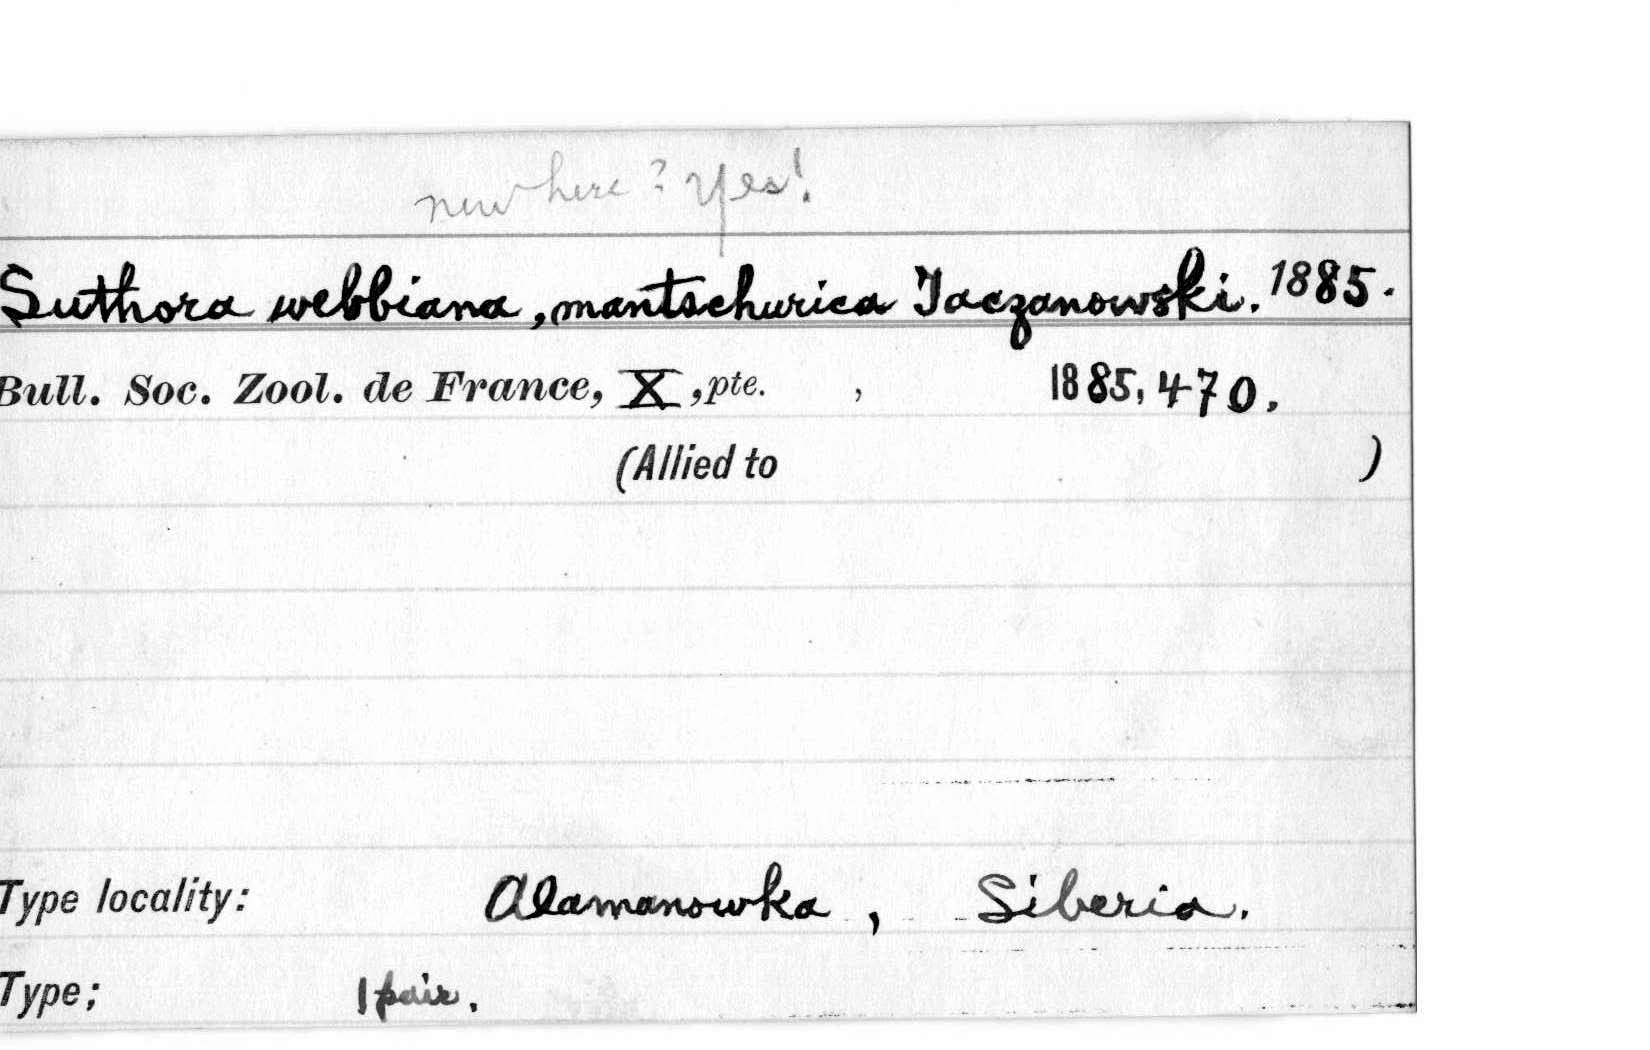 new here? Yes!
Suthora webbiana, mantschurica Taczanowski. 1885.
Bull. Soc. Zool. de France, X, pte. , 1885, 470.
(Allied to )
Type locality: Alamanowka, Siberia.
Type; 1 pair.